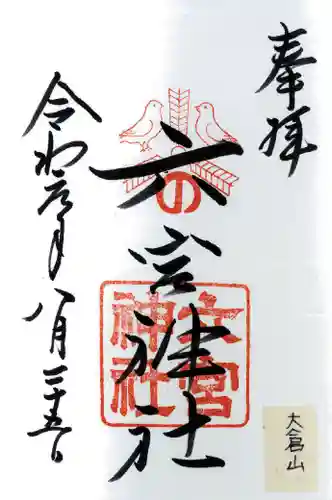 奉拝
六宮神社
の
六宮
神社
令和元年
八月二十五日
大倉山